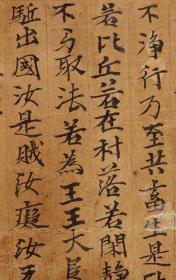 不淨行乃至共畜生是
若比丘若在村落若閑靜
不与取法若為王王大臣
駈出國汝是賊汝癡汝无